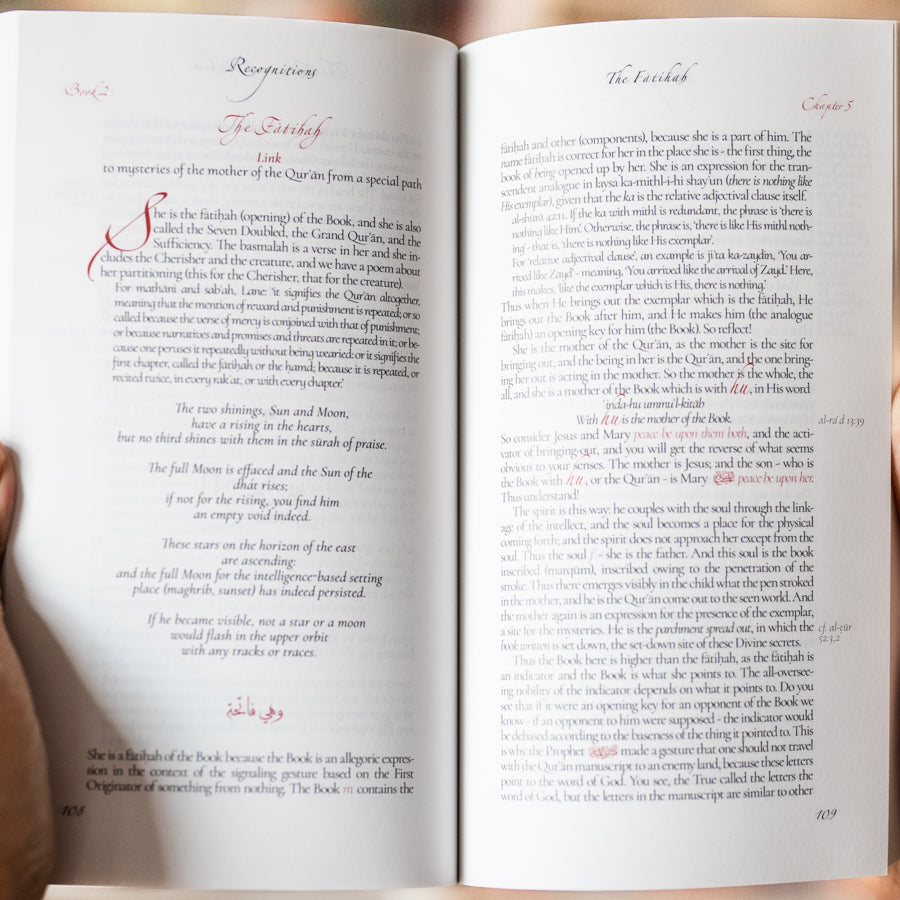 Recognitions
Book 2
The Fātiḥah
Link
to mysteries of the mother of the Qurʾān from a special path
She is the fātiḥah (opening) of the Book, and she is also
called the Seven Doubled, the Grand Qurʾān, and the
Sufficiency. The basmalah is a verse in her and she in-
cludes the Cherisher and the creature, and we have a poem about
her partitioning (this for the Cherisher, that for the creature).
For mathānī and sabʿah, Lane: 'it signifies the Qurʾān altogether,
meaning that the mention of reward and punishment is repeated; or so
called because the verse of mercy is conjoined with that of punishment;
or because narratives and promises and threats are repeated in it; or be-
cause one peruses it repeatedly without being wearied: or it signifies the
first chapter, called the fātiḥah or the ḥamd; because it is repeated, or
recited twice, in every rakʿat, or with every chapter.'
The two shinings, Sun and Moon,
have a rising in the hearts,
but no third shines with them in the sūrah of praise.
The full Moon is effaced and the Sun of the
dhāt rises;
if not for the rising, you find him
an empty void indeed.
These stars on the horizon of the east
are ascending;
and the full Moon for the intelligence-based setting
place (maghrib, sunset) has indeed persisted.
If he became visible, not a star or a moon
would flash in the upper orbit
with any tracks or traces.
وهي فاتحة
She is a fātiḥah of the Book because the Book is an allegoric expres-
sion in the context of the signaling gesture based on the First
Originator of something from nothing. The Book m contains the
108
The Fātiḥah
Chapter 5
fātiḥah and other (components), because she is a part of him. The
name fātiḥah is correct for her in the place she is - the first thing, the
book of being opened up by her. She is an expression for the tran-
scendent analogue in laysa ka-mithl-i-hi shayʾun (there is nothing like
His exemplar), given that the ka is the relative adjectival clause itself.
al-shūrā 42:11. If the ka with mithl is redundant, the phrase is 'there is
nothing like Him'. Otherwise, the phrase is, 'there is like His mithl noth-
ing' - that is, 'there is nothing like His exemplar'.
For 'relative adjectival clause', an example is jiʾta ka-zaydin, 'You ar-
rived like Zayd' - meaning, 'You arrived like the arrival of Zayd.' Here,
this makes, 'like the exemplar which is His, there is nothing.'
Thus when He brings out the exemplar which is the fātiḥah, He
brings out the Book after him, and He makes him (the analogue
fātiḥah) an opening key for him (the Book). So reflect!
She is the mother of the Qurʾān, as the mother is the site for
bringing-out, and the being in her is the Qurʾān, and the one bring-
ing her out is acting in the mother. So the mother is the whole, the
all, and she is a mother of the Book which is with hu, in His word
ʿinda-hu ummuʾl-kitāb
With hu is the mother of the Book.
al-raʿd 13:39
So consider Jesus and Mary peace be upon them both, and the acti-
vator of bringing-out, and you will get the reverse of what seems
obvious to your senses. The mother is Jesus; and the son - who is
the Book with hu, or the Qurʾān - is Mary peace be upon her.
Thus understand!
The spirit is this way: he couples with the soul through the link-
age of the intellect, and the soul becomes a place for the physical
coming forth; and the spirit does not approach her except from the
soul. Thus the soul f - she is the father. And this soul is the book
inscribed (marqūm), inscribed owing to the penetration of the
stroke. Thus there emerges visibly in the child what the pen stroked
in the mother, and he is the Qurʾān come out to the seen world. And
the mother again is an expression for the presence of the exemplar,
a site for the mysteries. He is the parchment spread out, in which the
cf. al-ṭūr
book written is set down, the set-down site of these Divine secrets.
52:3,2
Thus the Book here is higher than the fātiḥah, as the fātiḥah is
an indicator and the Book is what she points to. The all-oversee-
ing nobility of the indicator depends on what it points to. Do you
see that if it were an opening key for an opponent of the Book we
know - if an opponent to him were supposed - the indicator would
be debased according to the baseness of the thing it pointed to. This
is why the Prophet made a gesture that one should not travel
with the Qurʾān manuscript to an enemy land, because these letters
point to the word of God. You see, the True called the letters the
word of God, but the letters in the manuscript are similar to other
109